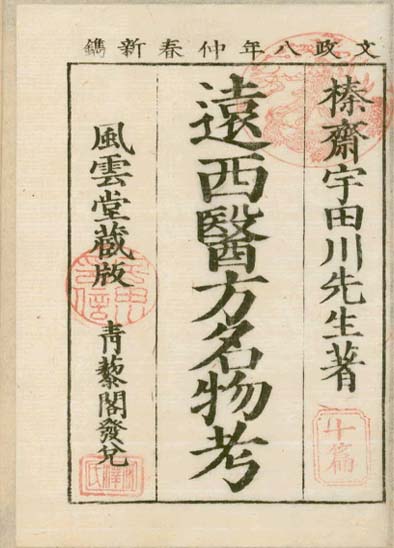 文政八年仲春新鐫
榛齋宇田川先生著
十篇
遠西醫方名物考
風雲堂蔵版
青藜閣發兌